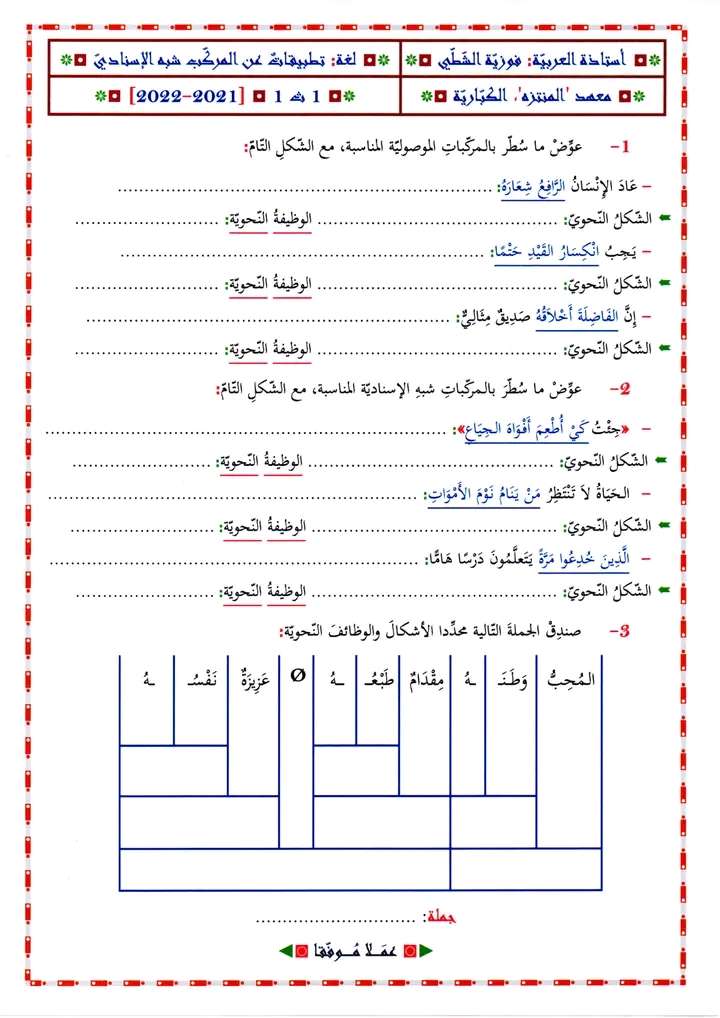 أستاذة العربيّة: فوزيّة الشّطّي
لغة: تطبيقاتٌ عن المركّب شبه الإسناديّ
معهد 'المنتزه'، الكبّاريّة
1 ث 1 [2021-2022]
1- عوِّضْ ما سُطّر بالمركّباتِ الموصوليّة المناسبة، مع الشّكلِ التّامّ:
– عَادَ الإِنْسَانُ الرَّافِعُ شِعَارَهُ: ............................................................
الشّكلُ النّحويّ: ............................................. الوظيفةُ النّحويّة: ...........................
– يَجِبُ انْكِسَارُ القَيْدِ حَتْمًا: ............................................................
الشّكلُ النّحويّ: ............................................. الوظيفةُ النّحويّة: ...........................
– إِنَّ الفَاضِلَةَ أَخْلاَقُهُ صَدِيقٌ مِثَالِيٌّ: ............................................................
الشّكلُ النّحويّ: ............................................. الوظيفةُ النّحويّة: ...........................
2- عوِّضْ ما سُطّرَ بالمركّباتِ شبهِ الإسناديّة المناسبة، مع الشّكلِ التّامّ:
– «جِئْتُ كَيْ أُطْعِمَ أَفْوَاهَ الجِيَاعِ»: ............................................................
الشّكلُ النّحويّ: ............................................. الوظيفةُ النّحويّة: ...........................
– الحَيَاةُ لاَ تَنْتَظِرُ مَنْ يَنَامُ نَوْمَ الأَمْوَاتِ: ............................................................
الشّكلُ النّحويّ: ............................................. الوظيفةُ النّحويّة: ...........................
– الَّذِينَ خُدِعُوا مَرَّةً يَتَعلَّمُونَ دَرْسًا هَامًّا: ............................................................
الشّكلُ النّحويّ: ............................................. الوظيفةُ النّحويّة: ...........................
3- صندِقْ الجملةَ التّالية محدِّدا الأشكالَ والوظائفَ النّحويّة:
المُحِبُّ وَطَنَـ ـهُ مِقْدَامٌ طَبْعُـ ـهُ Ø عَزِيزَةٌ نَفْسُـ ـهُ
جملة: ..............................
عمَـلا مُـوفّقا